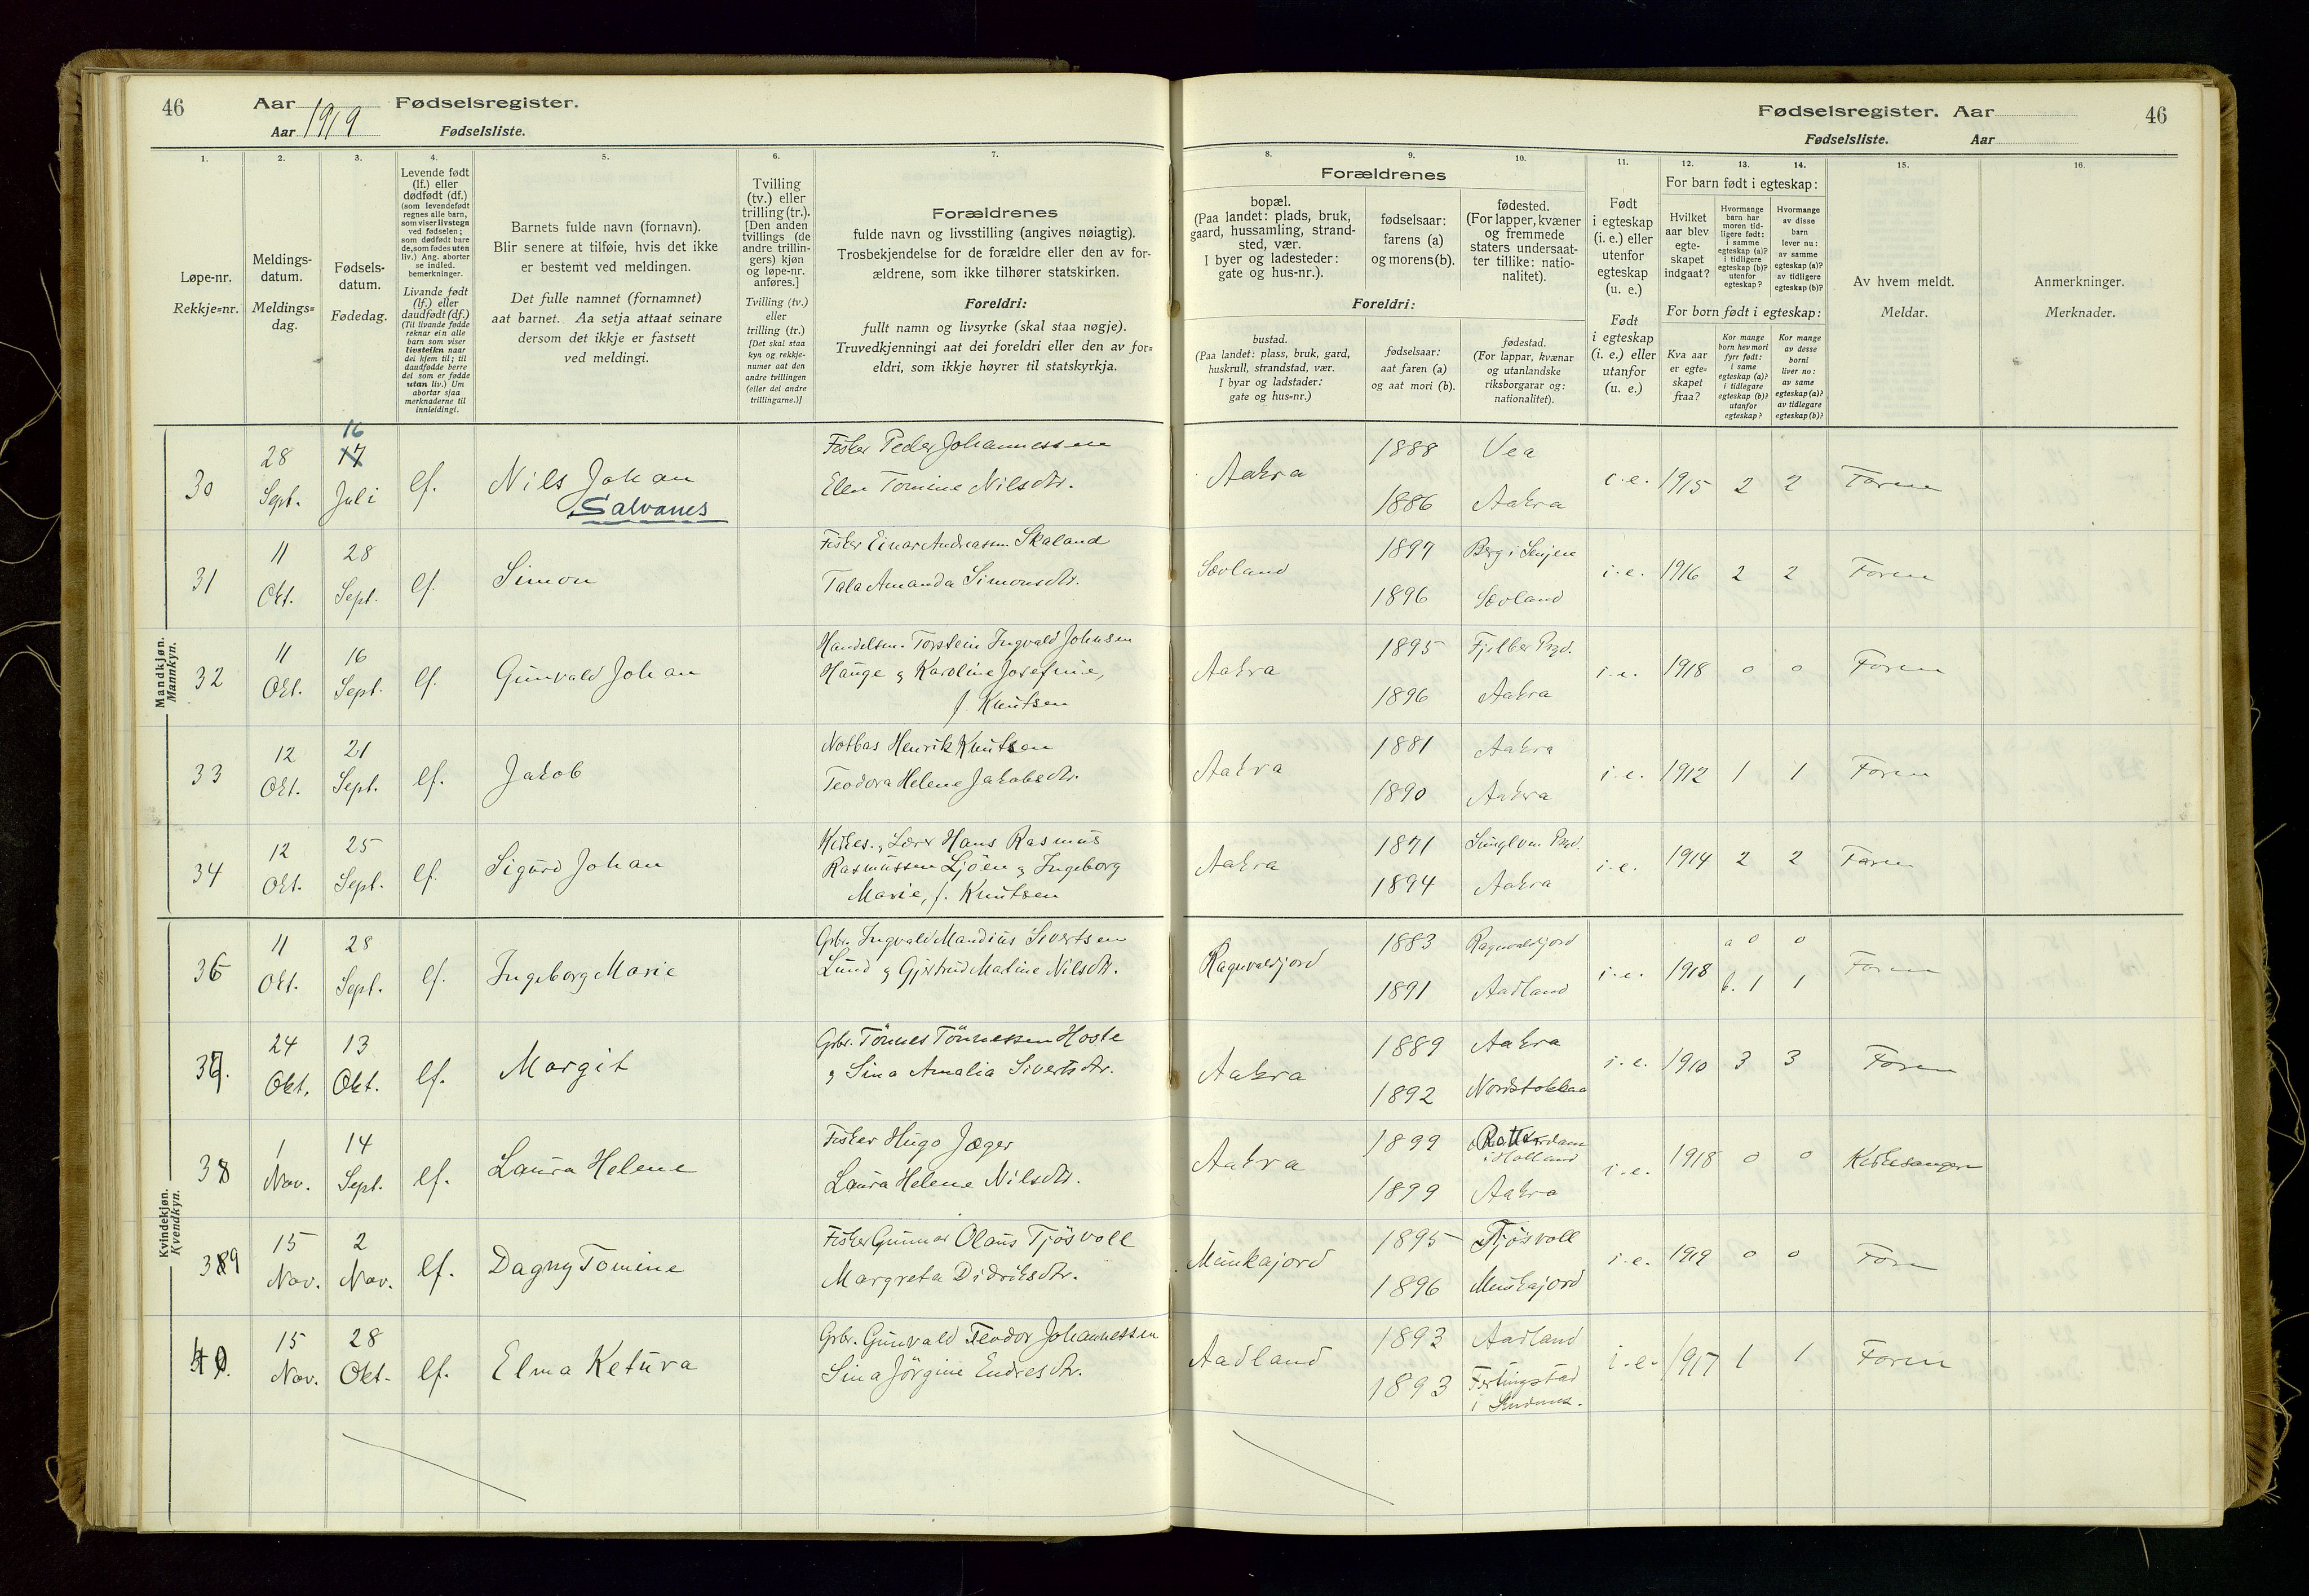 46
Aar 1919 Fødselsregister.
Aar
Fødselsliste.
1.
2.
3.
4.
5.
6.
7.
Løpe-nr.
Rekkje=nr.
Meldings-
datum.
Meldings=
dag.
Fødsels-
datum.
Fødedag.
Levende født
(lf.) eller
dødfødt (df.)
(som levendefødt
regnes alle barn,
som viser livstegn
ved fødselen;
som dødfødt bare
de, som fødes uten
liv.) Ang. aborter
se indled.
bemerkninger.
Livande født
(lf.) eller
daudfødt (df.)
(Til livande fødde
reknar ein alle
barn som viser
livsteikn naar
dei kjem til; til
daudfødde berre
dei som er fødde
utan liv.) Um
abortar sjaa
merknaderne til
innleidingi.
Barnets fulde navn (fornavn).
Blir senere at tilføie, hvis det ikke
er bestemt ved meldingen.
Det fulle namnet (fornamnet)
aat barnet. Aa setja attaat seinare
dersom det ikkje er fastsett
ved meldingi.
Tvilling
(tv.) eller
trilling (tr.).
[Den anden
tvillings (de
andre trillin-
gers) kjøn
og løpe-nr.
anføres.]
Tvilling (tv.)
eller
trilling (tr.)
[Det skal staa
kyn og rekkje-
numer aat den
andre tvillingen
(eller dei andre
trillingarne.)]
Forældrenes
fulde navn og livsstilling (angives nøiagtig).
Trosbekjendelse for de forældre eller den av for-
ældrene, som ikke tilhører statskirken.
Foreldri:
fullt namn og livsyrke (skal staa nøgje).
Truvedkjenningi aat dei foreldri eller den av for=
eldri, som ikkje høyrer til statskyrkja.
Mandkjøn.
Mannkyn.
30 28 Sept. 16 17 Juli lf. Nils Johan Salvanes
Fisker Peder Johannessen
Elen Tomine Nilsdtr.
31 11 Okt. 28 Sept. lf. Simon
Fisker Einar Andreassen Skaland
Tala Amanda Simonsdtr.
32 11 Okt. 16 Sept. lf. Gunvald Johan
Handelsm. Torstein Ingvald Johnsen
Hauge & Karoline Josefine,
f. Knutsen
33 12 Okt. 21 Sept. lf. Jakob
Notbas Henrik Knutsen
Teodora Helene Jakobsdtr.
34 12 Okt. 25 Sept. lf. Sigurd Johan
Kirkes. & Lærer Hans Rasmus
Rasmussen Ljöen & Ingeborg
Marie, f. Knutsen
Kvindekjøn.
Kvendkyn.
36 11 Okt. 28 Sept. lf. Ingeborg Marie
Gbr. Ingvald Mandius Sivertsen
Lund & Gjertrud Maline Nilsdtr.
37. 24 Okt. 13 Okt. lf. Margit
Gbr. Tönnes Tönnessen Hoste
& Sina Amalia Sivertsdtr.
38 1 Nov. 14 Sept. lf. Laura Helene
Fisker Hugo Jæger
Laura Helene Nilsdtr.
39 15 Nov. 2 Nov. lf. Dagny Tomine
Fisker Gunnar Olaus Tjösvoll
Margreta Didriksdtr.
40. 15 Nov. 28 Okt. lf. Elma Ketura
Gbr. Gunvald Teodor Johannessen
Sina Jörgine Endresdtr.
Fødselsregister. Aar
46
Fødselsliste.
Aar
8.
9.
10.
11.
12.
13.
14.
15.
16.
Forældrenes
bopæl.
(Paa landet: plads, bruk,
gaard, hussamling, strand-
sted, vær.
I byer og ladesteder:
gate og hus-nr.).
fødselsaar:
farens (a)
og morens (b).
fødested.
(For lapper, kvæner
og fremmede
staters undersaat-
ter tillike: natio-
nalitet).
Foreldri:
bustad.
(Paa landet: plass, bruk, gard,
huskrull, strandstad, vær.
I byar og ladstader:
gate og hus=nr.)
fødselsaar:
aat faren (a)
og aat mori (b).
fødestad.
(For lappar, kvænar
og utanlandske
riksborgarar og:
nationalitet).
Født
i egteskap
(i. e.) eller
utenfor
egteskap
(u. e.)
Født
i egteskap
(i. e.) eller
utanfor
(u. e.)
For barn født i egteskap:
Hvilket
aar blev
egte-
skapet
indgaat?
Hvormange
barn har
moren tid-
ligere født:
i samme
egteskap (a)?
i tidligere
egteskap (b)?
utenfor
egteskap?
Hvormange
av disse
barn
lever nu:
av samme
egteskap (a)?
av tidligere
egteskap (b)?
For born født i egteskap:
Kva aar
er egte=
skapet
fraa?
Kor mange
born hev mori
fyrr født:
i same
egteskap (a)?
i tidlegare
egteskap (b)?
utanfor
egteskap?
Kor mange
av desse
borni
liver no:
av same
egteskap (a)?
av tidlegare
egteskap (b)?
Av hvem meldt.
Meldar.
Anmerkninger.
Merknader.
Aakra 1888 Vea i.e. 1915 2 2 Faren
1886 Aakra
Sævland 1897 Berg i Senjen i.e. 1916 2 2 Faren
1896 Sævland
Aakra 1895 Fjelber Pgd. i.e. 1918 0 0 Faren
1896 Aakra
Aakra 1881 Aakra i.e. 1912 1 1 Faren
1890 Aakra
Aakra 1871 Sunglven Pgd. i.e. 1914 2 2 Faren
1894 Aakra
Ragnvaldjord 1883 Ragnvaldjord i.e. 1918 a 0 0 Faren
1891 Aadland b. 1 1
Aakra 1889 Aakra i.e. 1910 3 3 Faren
1892 Nordstokkaa
Aakra 1899 Rotterdam i Holland i.e. 1918 0 0 Kirkesanger
1899 Aakra
Munkajord 1895 Tjösvoll i.e. 1919 0 0 Faren
1896 Munkajord
Aadland 1893 Aadland i.e. 1917 1 1 Faren
1893 Ferkingstad